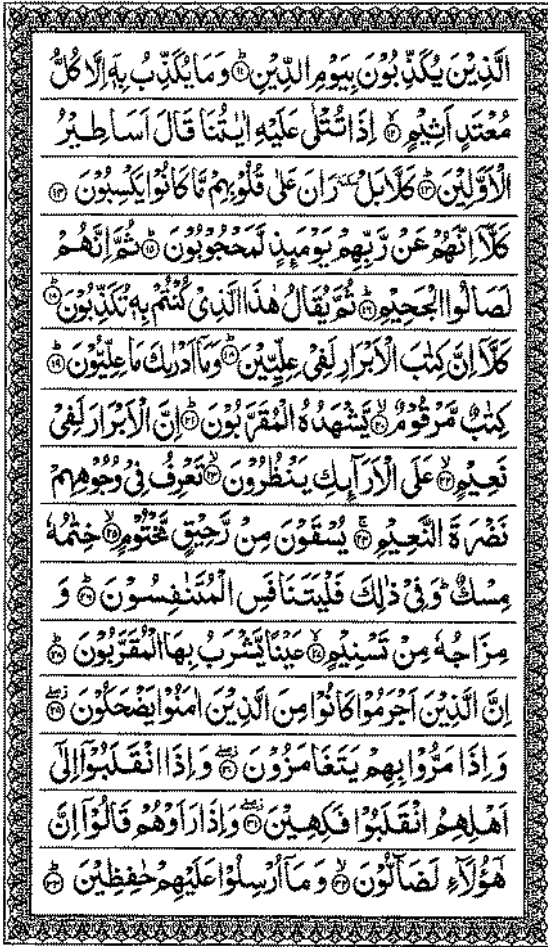 الَّذِيْنَ يُكَذِّبُوْنَ بِيَوْمِ الدِّيْنِ ؕ﴿۱۱﴾ وَ مَا يُكَذِّبُ بِهٖۤ اِلَّا كُلُّ
مُعْتَدٍ اَثِيْمٍ ۙ﴿۱۲﴾ اِذَا تُتْلٰى عَلَيْهِ اٰيٰتُنَا قَالَ اَسَاطِيْرُ
الْاَوَّلِيْنَ ؕ﴿۱۳﴾ كَلَّا بَلْ ٚ رَانَ عَلٰى قُلُوْبِهِمْ مَّا كَانُوْا يَكْسِبُوْنَ ﴿۱۴﴾
كَلَّاۤ اِنَّهُمْ عَنْ رَّبِّهِمْ يَوْمَىِٕذٍ لَّمَحْجُوْبُوْنَ ؕ﴿۱۵﴾ ثُمَّ اِنَّهُمْ
لَصَالُوا الْجَحِيْمِ ؕ﴿۱۶﴾ ثُمَّ يُقَالُ هٰذَا الَّذِىْ كُنْتُمْ بِهٖ تُكَذِّبُوْنَ ؕ﴿۱۷﴾
كَلَّاۤ اِنَّ كِتٰبَ الْاَبْرَارِ لَفِىْ عِلِّيِّيْنَ ؕ﴿۱۸﴾ وَ مَاۤ اَدْرٰىكَ مَا عِلِّيُّوْنَ ؕ﴿۱۹﴾
كِتٰبٌ مَّرْقُوْمٌ ۙ﴿۲۰﴾ يَّشْهَدُهُ الْمُقَرَّبُوْنَ ؕ﴿۲۱﴾ اِنَّ الْاَبْرَارَ لَفِىْ
نَعِيْمٍ ۙ﴿۲۲﴾ عَلَى الْاَرَآىِٕكِ يَنْظُرُوْنَ ۙ﴿۲۳﴾ تَعْرِفُ فِىْ وُجُوْهِهِمْ
نَضْرَةَ النَّعِيْمِ ۚ﴿۲۴﴾ يُسْقَوْنَ مِنْ رَّحِيْقٍ مَّخْتُوْمٍ ۙ﴿۲۵﴾ خِتٰمُهٗ
مِسْكٌ ؕ وَ فِىْ ذٰلِكَ فَلْيَتَنَافَسِ الْمُتَنٰفِسُوْنَ ؕ﴿۲۶﴾ وَ
مِزَاجُهٗ مِنْ تَسْنِيْمٍ ۙ﴿۲۷﴾ عَيْنًا يَّشْرَبُ بِهَا الْمُقَرَّبُوْنَ ؕ﴿۲۸﴾
اِنَّ الَّذِيْنَ اَجْرَمُوْا كَانُوْا مِنَ الَّذِيْنَ اٰمَنُوْا يَضْحَكُوْنَ ﴿۲۹﴾
وَ اِذَا مَرُّوْا بِهِمْ يَتَغَامَزُوْنَ ﴿۳۰﴾ وَ اِذَا انْقَلَبُوْۤا اِلٰۤى
اَهْلِهِمُ انْقَلَبُوْا فَكِهِيْنَ ﴿۳۱﴾ وَ اِذَا رَاَوْهُمْ قَالُوْۤا اِنَّ
هٰۤؤُلَآءِ لَضَآلُّوْنَ ۙ﴿۳۲﴾ وَ مَاۤ اُرْسِلُوْا عَلَيْهِمْ حٰفِظِيْنَ ؕ﴿۳۳﴾